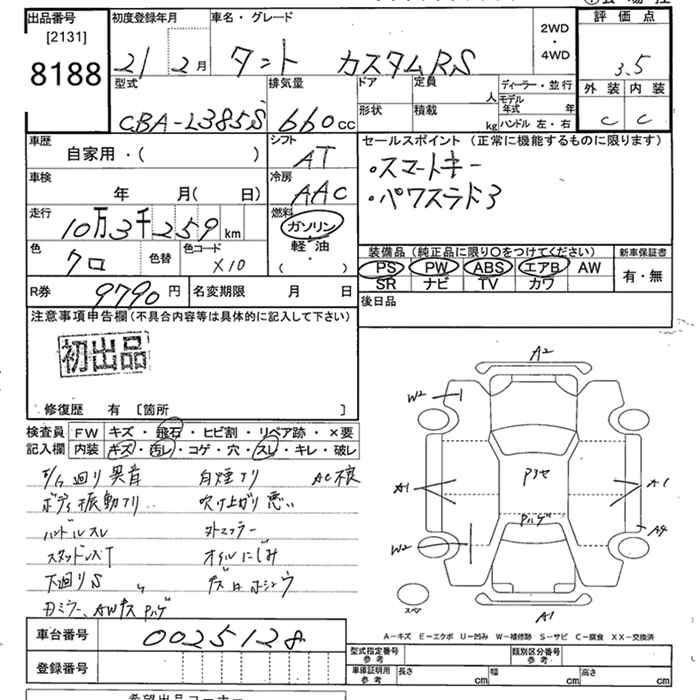 出品番号 初度登録年月 車名・グレード 評価点
[2131] 2WD・4WD
8188 21 2月 タント カスタムRS 3.5
型式 排気量 ドア 定員 人 ディーラー・並行 外装 内装
形状 積載 kg モデル年式 年 ハンドル 左・右
CBA-L385S 660cc C C
車歴 シフト セールスポイント (正常に機能するものに限ります)
自家用・( ) AT ・スマートキー
車検 冷房
年 月( 日) AAC ・パワスラド3
走行 燃料
10万3千259km ガソリン
色 色替 色コード 軽・油 装備品 (純正品に限り○をつけてください) 新車保証書
クロ X10 ( ・ ) PS PW ABS エアB AW 有・無
SR ナビ TV カワ
R券 9790円 名変期限 月 日 後日品
注意事項申告欄(不具合内容等は具体的に記入して下さい)
初出品
修復歴 有 [箇所 ]
検査員 FW キズ・飛石・ヒビ割・リペア跡・×要
記入欄 内装 キズ・汚レ・コゲ・穴・スレ・キレ・破レ
廻り異音 AC不良
ボディ振動アリ 吹け上がり悪い
ハンドルスレ
スタッドレスT オイルにじみ
下廻りS
A2
W2
A1 A1
A4
W2
A1
スペア
A－キズ E－エクボ U－凹み W－補修跡 S－サビ C－腐食 XX－交換済
車台番号 0025128
型式指定番号 参考 類別区分番号 参考
登録番号 車庫証明用 参考 長さ cm 幅 cm 高さ cm
希望出品コーナー